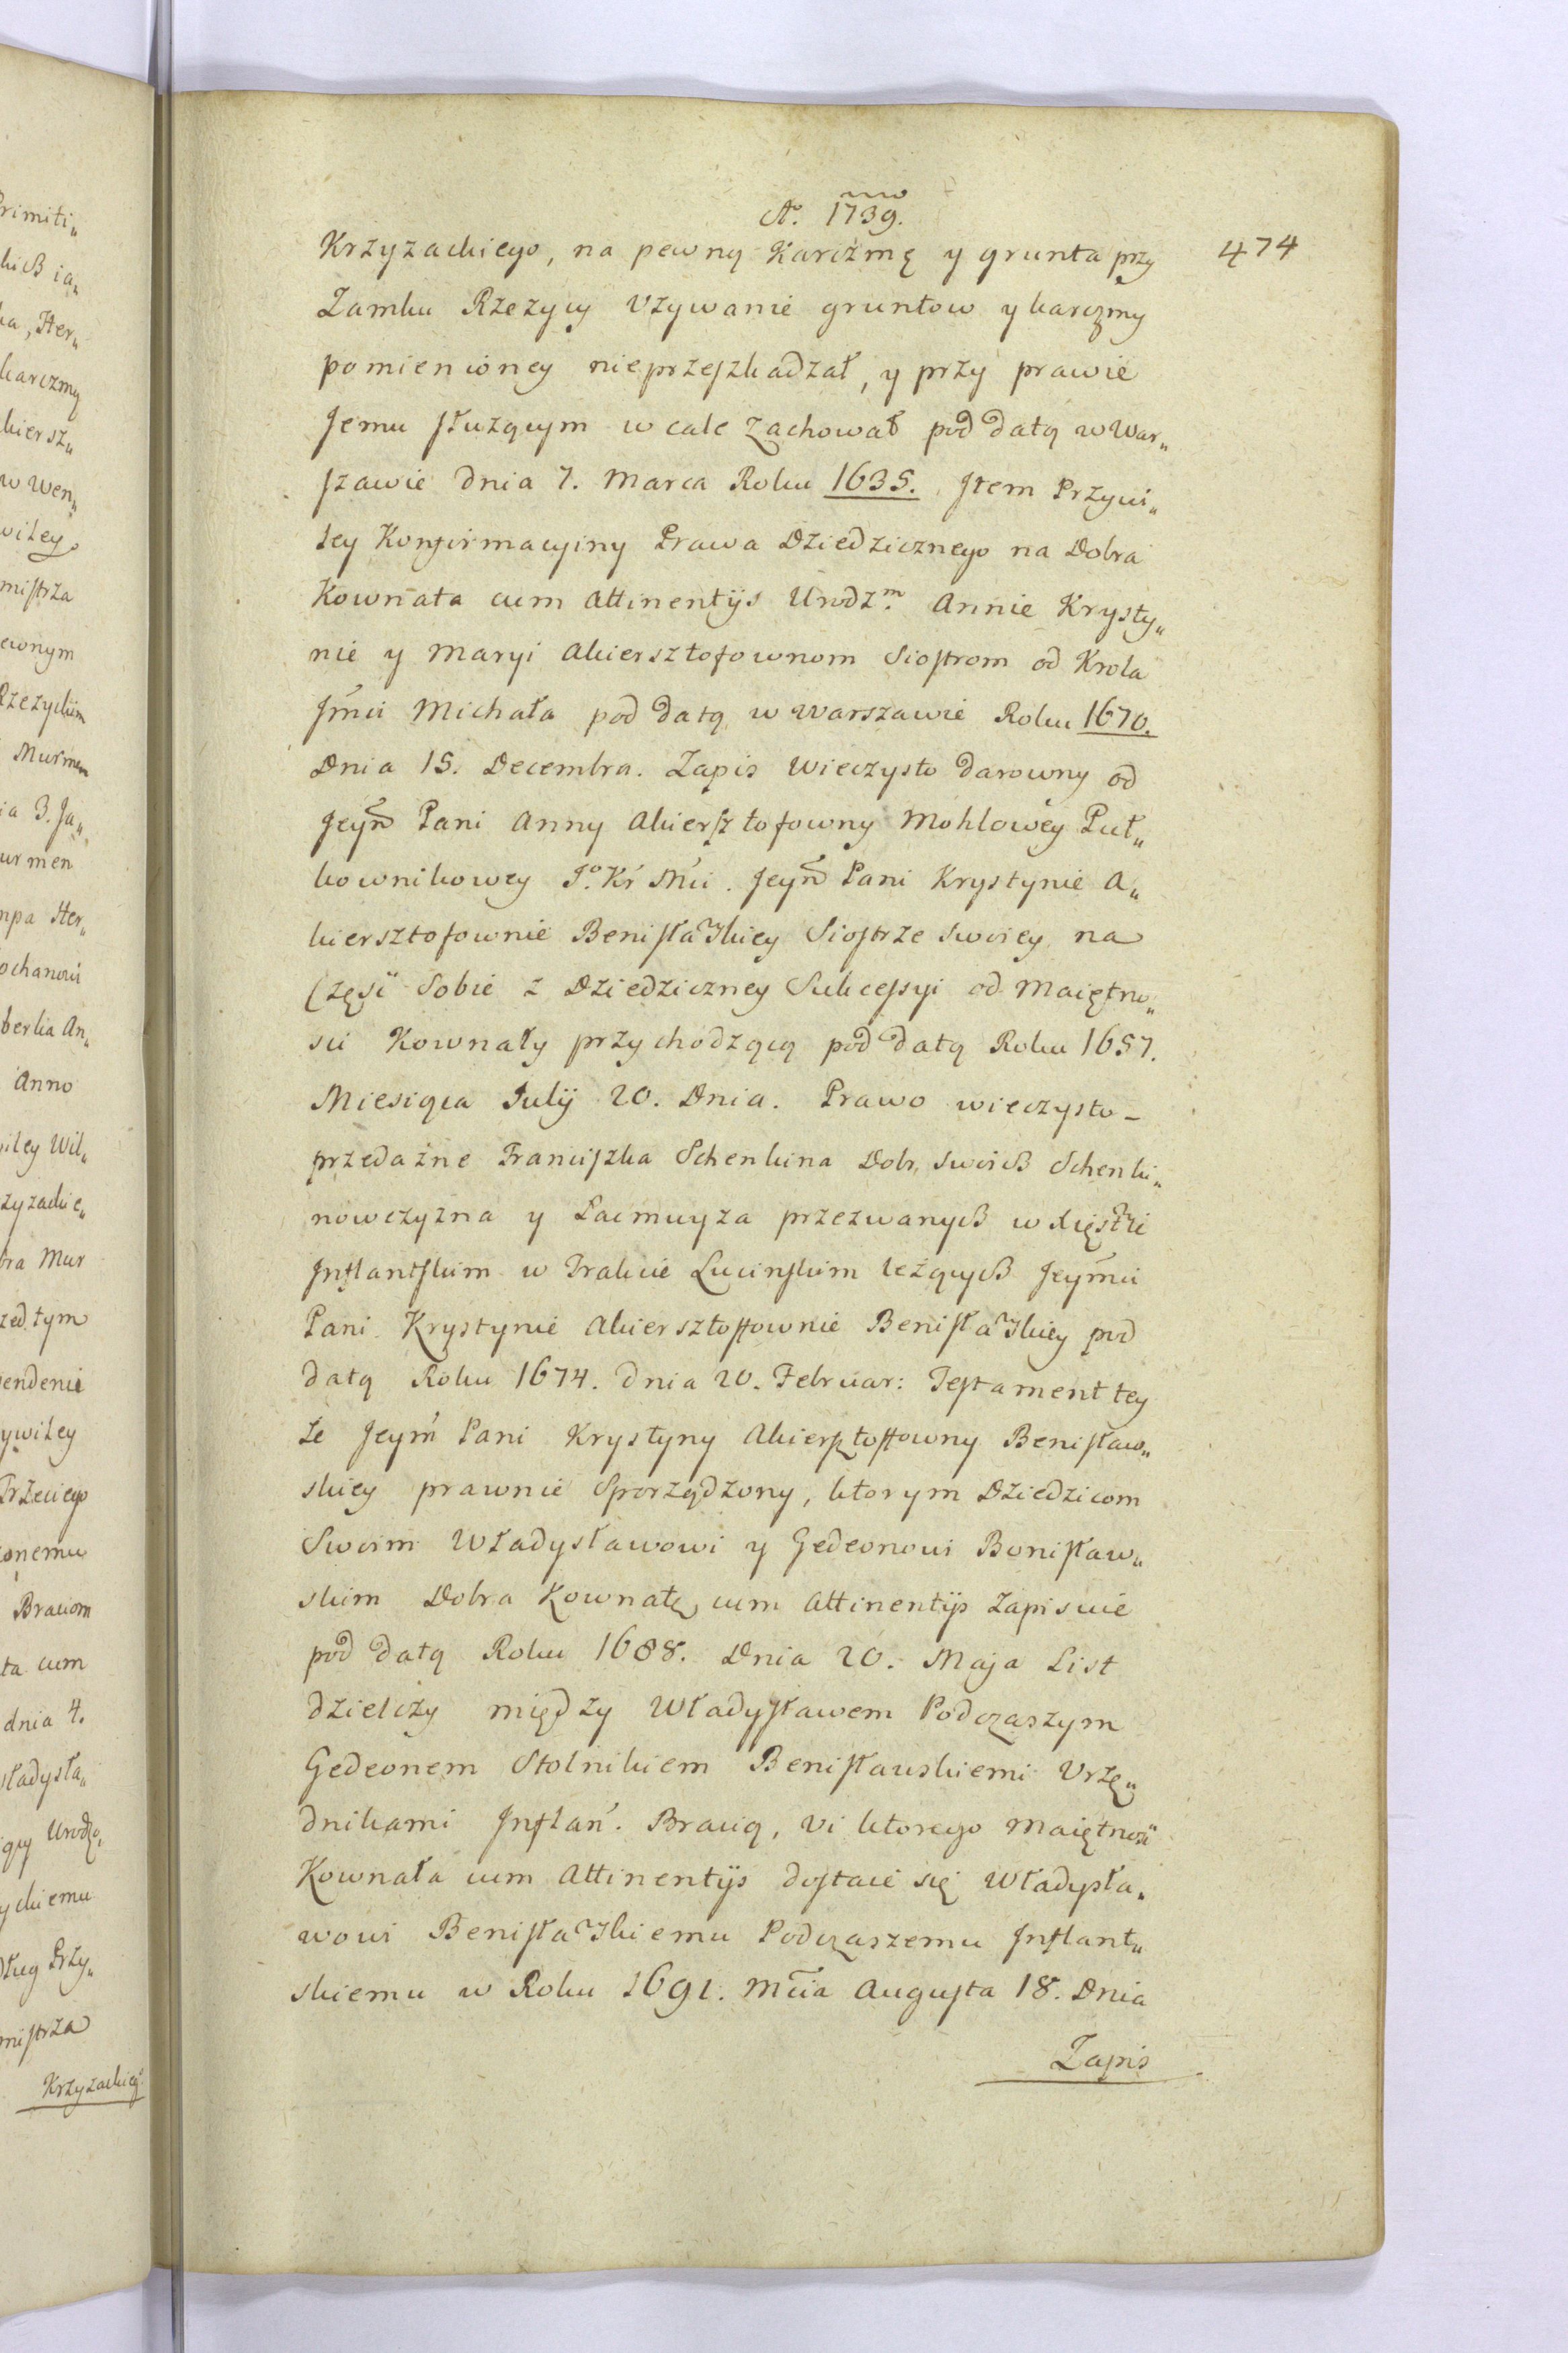 Ao. 1739.
474
Krzyżackiego, na pewną Karczmę y grunta przy
Zamku Rzeżycy Vzywanie gruntow y karczmy
pomienioney nieprzeszkadzał, y przy prawie
Jemu służącym w cale zachował pod datą w War„
szawie dnia 7. Marca Roku 1635. Item Przywi„
ley Konfirmacyiny Prawa Dziedzicznego na Dobra
Kownata cum Attinentijs Urodz.m Annie Krysty„
nie y Maryi Akiersztofownom Siostrom od Krola
Jmći Michała pod datą w Warszawie Roku 1670.
Dnia 15. Decembra. Zapis wieczysto darowny od
Jeym Pani Anny Akiersztofowny Mohlowey Puł„
kownikowey J.o Kr Mći. Jeym Pani Krystynie A„
kiersztofownie Benisławskiey Siostrze swoiey na
Części Sobie z Dziedziczney Sukcessyi od Maiętno„
sci Kownaty przychodzącą pod datą Roku 1657.
Miesiąca Julij 20. Dnia. Prawo wieczysto-
przedażne Franciszka Schenkina Dobr swoich Schenki„
nowczyzna y Pacmuyza przezwanych w Xięstwie
Inflantskim w Trakcie Lucinskim leżących Jeymći
Pani Krystynie Akiersztoffownie Benisławskiey pod
datą Roku 1674. dnia 20. Februar: Testament tey
że Jeym Pani Krystyny Akiersztoffowny Benisław„
skiey prawnie Sporządzony, ktorym Dziedzicom
Swoim Władysławowi y Gedeonowi Benisław„
skim Dobra Kownatę cum Attinentijs zapisuie
pod datą Roku 1688. Dnia 20. Maja List
dzielczy między Władysławem Podczaszym
Gedeonem Stolnikiem Benisławskiemi Vrzę„
dnikami Inflań. Bracią, vi ktorego Maiętność
Kownata cum Attinentijs dostaie się Władysła„
wowi Benisławskiemu Podczaszemu Inflant„
skiemu w Roku 1691. Mca Augusta 18. Dnia
Zapis